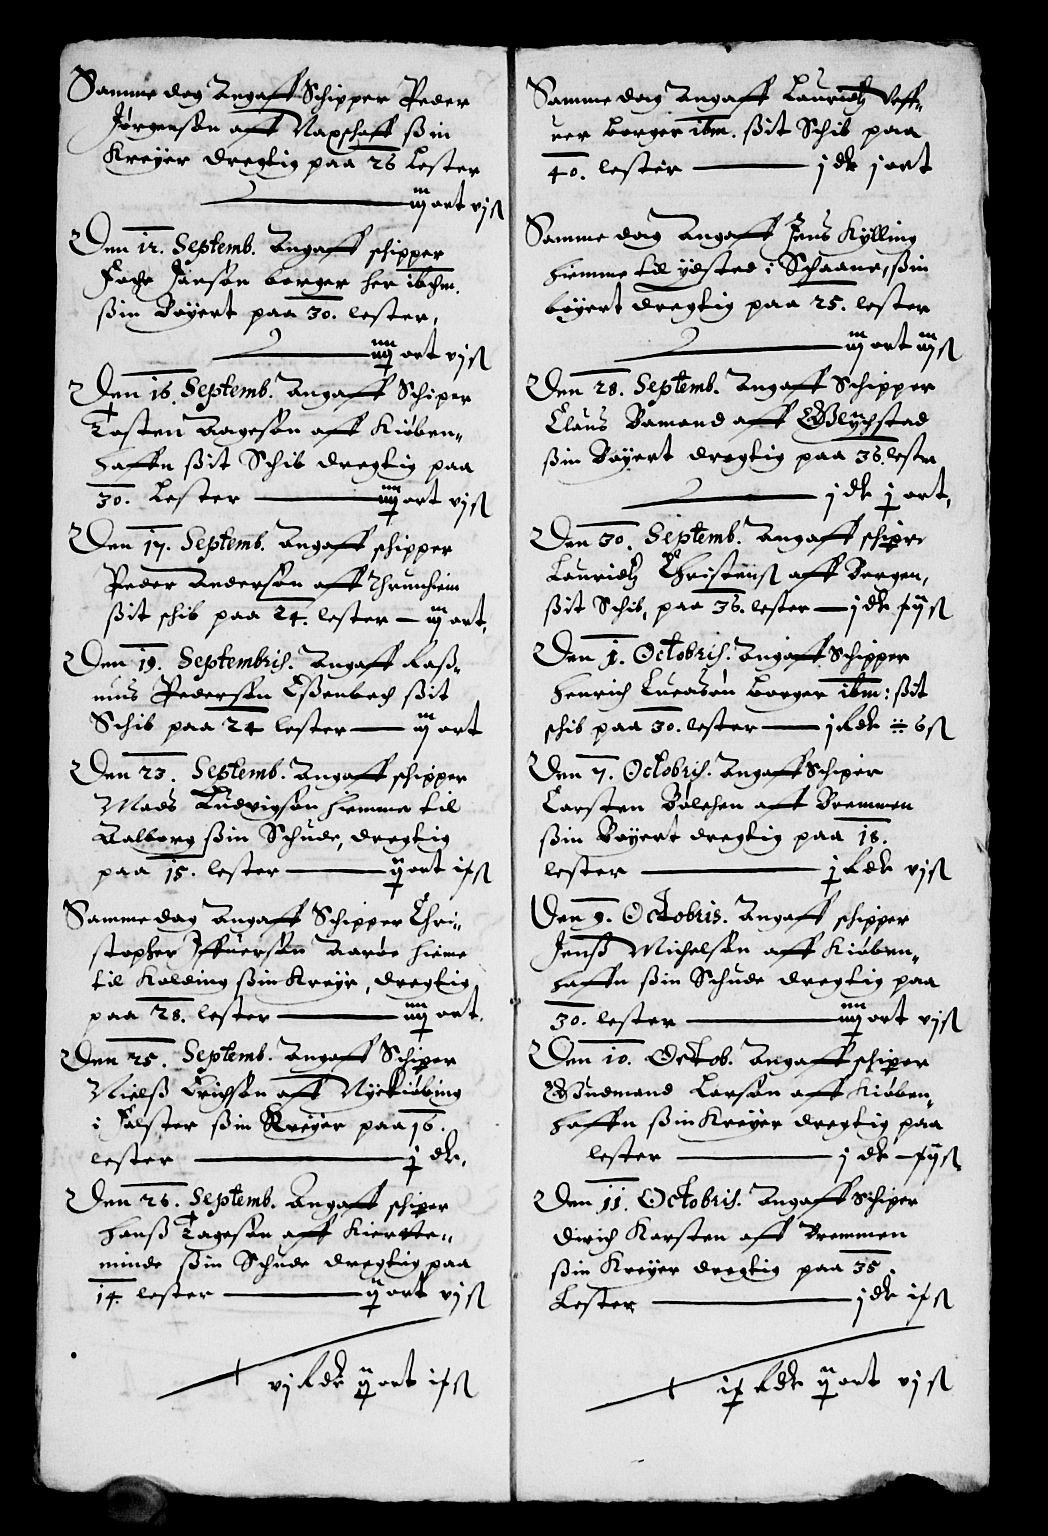 Samme dag Angaff Schipper Peder
Jørgensøn aff Napschaff ßin
Kreyer dregtig paa 26 Lester
iij ort vjß
Den 12. Septemb. Angaff schipper
Jansøn borger her ibdm.
ßin Bøyert paa 30. lester,
iiij ort vjß
Den 16. Septemb. Angaff Schiper
Tosten Aagesøn aff Kiøben„
haffn ßit Schib dregtig paa
30. Lester iiij ort vjß
Den 17. Septemb. Angaff schipper
Peder Andersøn aff Thrunhiem
ßit schib paa 24. lester iij ort.
Den 19. Septembris. Angaff Raß„
mus Pedersøn Eßenbech ßit
Schib paa 24 lester iij ort
Den 23. Septemb. Angaff schipper
Mads Ludvigsøn hiemme til
Aalborg ßin Schude, dregtig
paa 15. lester ij ort ixß
Samme dag Angaff Schipper Chri„
stopher Iffuersøn Aarøe hieme
til Kolding ßin Kreyr, dregtig
paa 28. lester iiij ort.
Den 25. Septemb. Angaff Schiper
Nielß Erichsøn aff Nyekiøbing
i Falster ßin Kreyer paa 16.
lester j dr.
Den 26. Septemb. Angaff schiper
Hanß Tagesøn aff Kierte„
minde ßin Schude dregtig paa
14. lester ij ort vjß
vj Rdr ij ort ixß
Samme dag Angaff Lauridtz Veff„
uer borger ibm. ßit Schib paa
40. lester j dr j ort
Samme dag Angaff Jens Kylling
hiemme til ydsted i Schaane, ßin
bøyert dregtig paa 25. lester
iij ort iijß
Den 28. Septemb. Angaff Schipper
Claus Bamand aff Glychstad
ßin Bøyert dregtig paa 36. lester
j dr j ort.
Den 30. Septemb. Angaff schiper
Lauridtz Christensß aff Bergen,
ßit Schib, paa 36. lester j dr xijß
Den 1. Octobris. Angaff Schipper
Henrich Lucasøn borger ibm: ßit
schib paa 30. lester j Rdr ÷ 6ß
Den 7. Octobris. Angaff Schiper
Carsten Bølchen aff Bremmen
ßin Bøyert dregtig paa 18.
lester j Rdr vjß
Den 9. Octobris. Angaff schipper
Jenß Michelsøn aff Kiøben„
haffn ßin Schude dregtig paa
30. lester iiij ort vjß
Den 10. Octob. Angaff schiper
Gudmand Larsøn aff Kiøben„
haffn ßin Kreyer dregtig paa
lester j dr xijß
Den 11. Octobris. Angaff Schiper
Dirich Karsten aff Bremmen
ßin Kreyer dregtig paa 35.
Lester j dr ixß
ix Rdr ij ort vjß